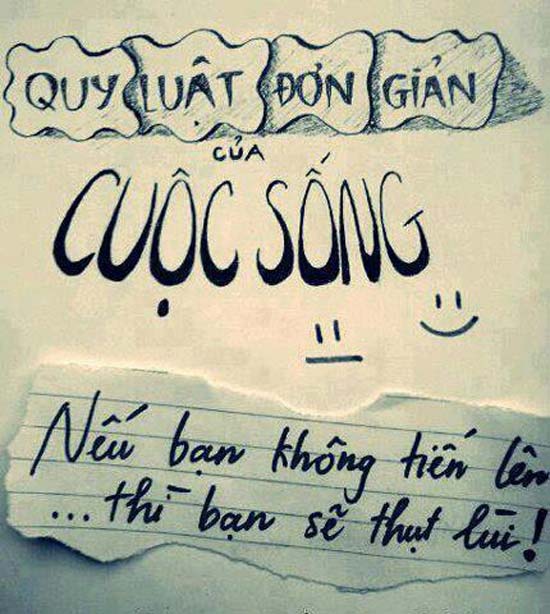 QUY LUẬT ĐƠN GIẢN
CỦA
CUỘC SỐNG
Nếu bạn không tiến lên
...thì bạn sẽ thụt lùi!